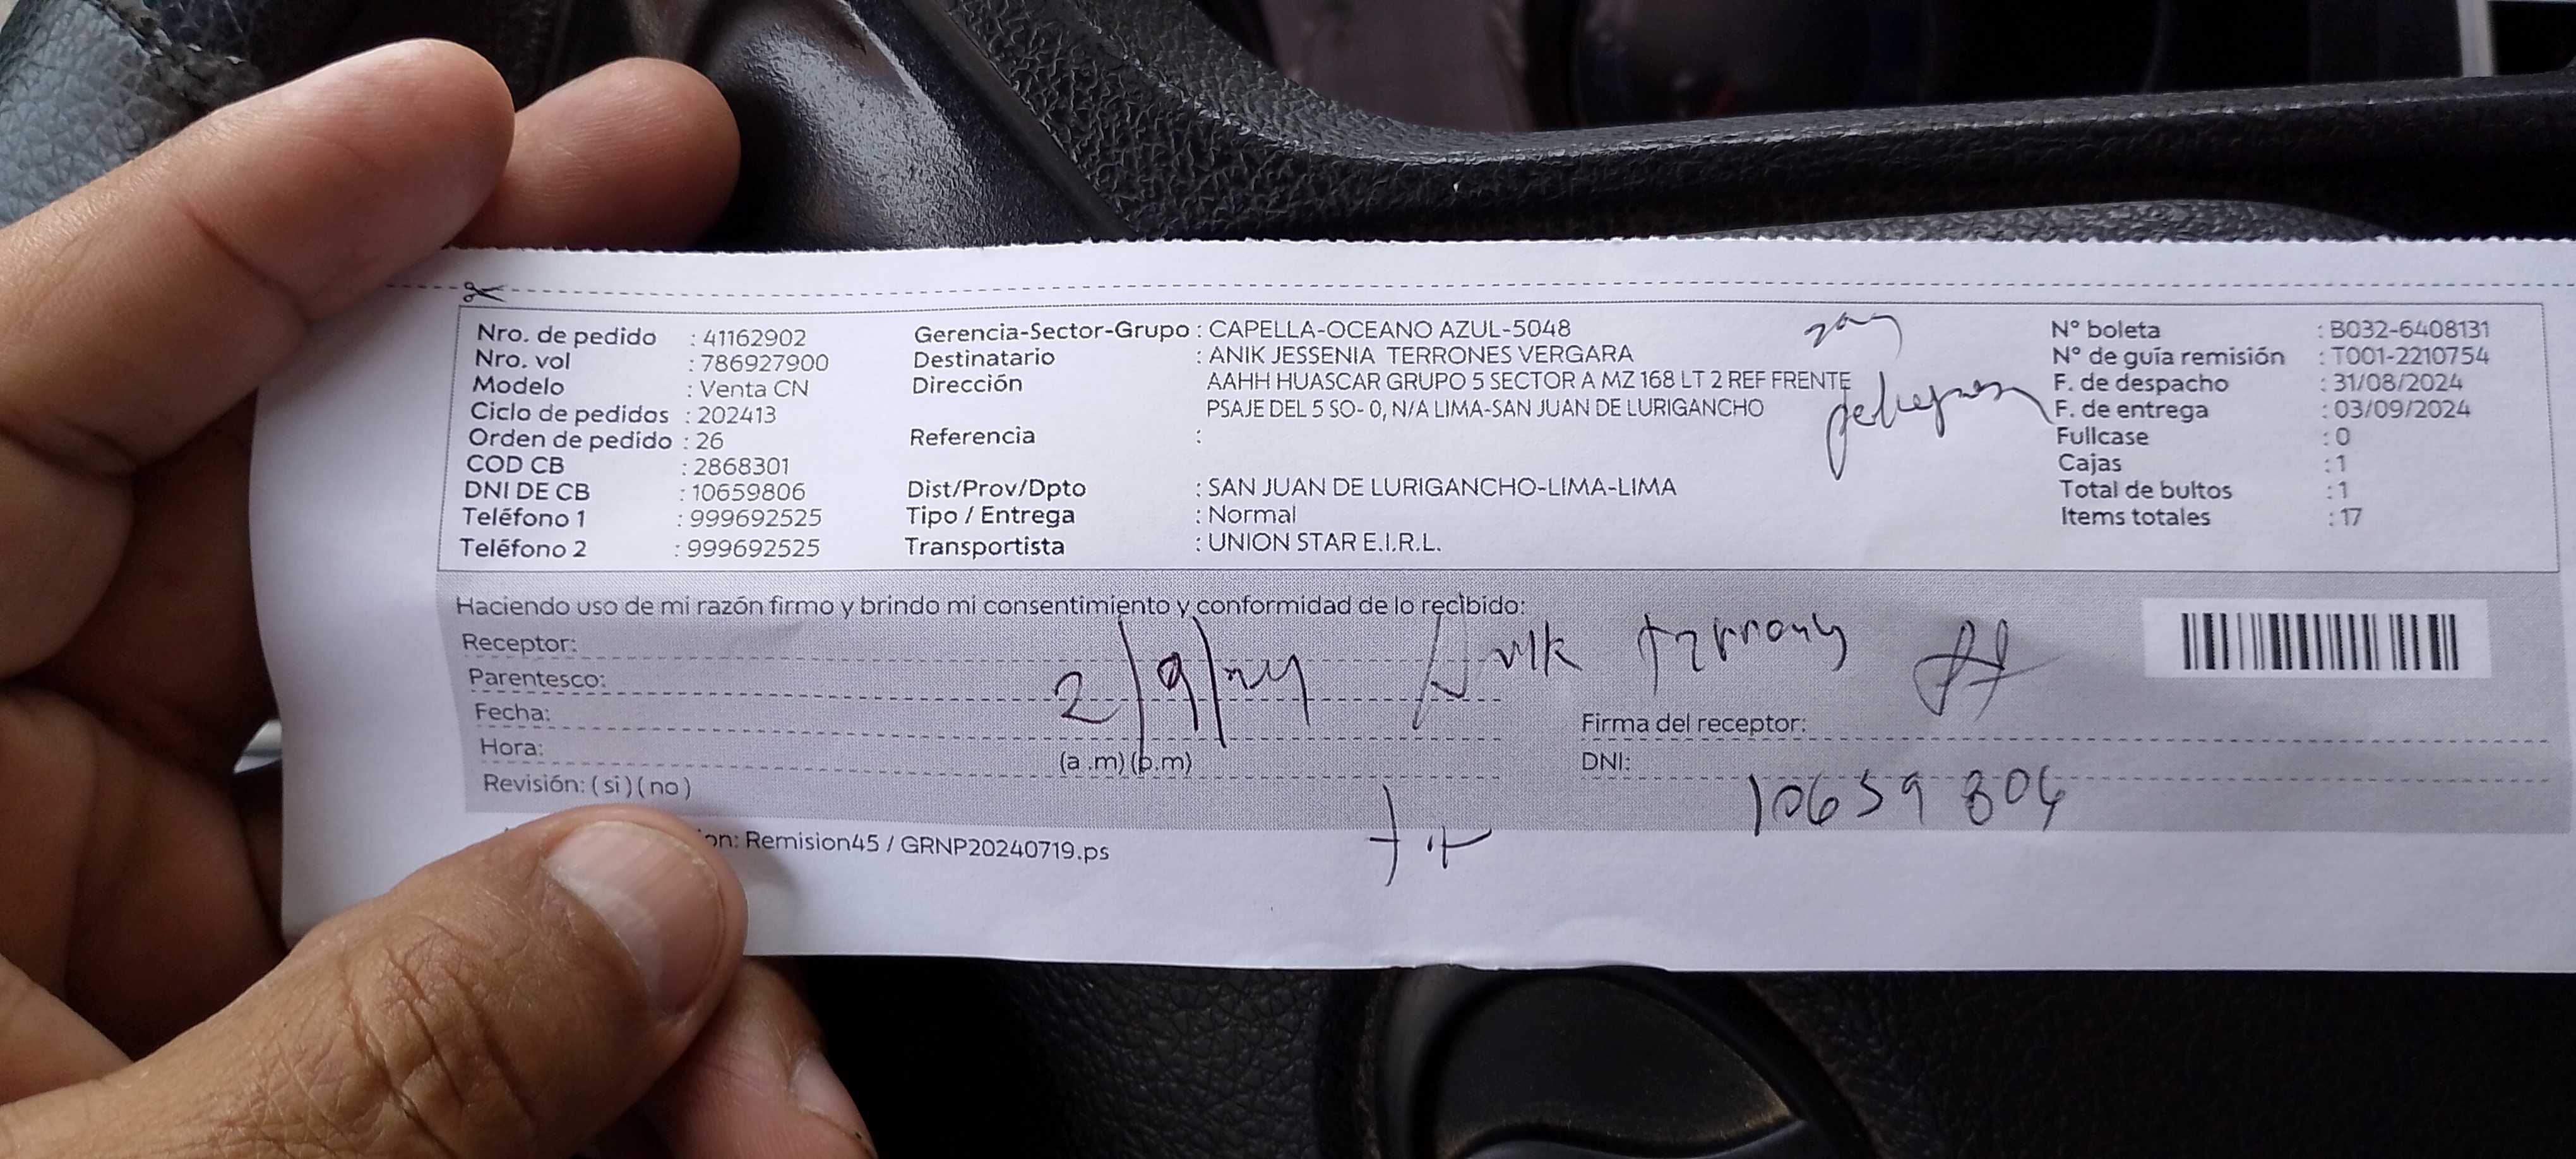 Nro. de pedido : 41162902
Nro. vol : 786927900
Modelo : Venta CN
Ciclo de pedidos : 202413
Orden de pedido : 26
COD CB : 2868301
DNI DE CB : 10659806
Teléfono 1 : 999692525
Teléfono 2 : 999692525
Gerencia-Sector-Grupo : CAPELLA-OCEANO AZUL-5048
Destinatario : ANIK JESSENIA TERRONES VERGARA
Dirección AAHH HUASCAR GRUPO 5 SECTOR A MZ 168 LT 2 REF FRENTE
PSAJE DEL 5 SO- 0, N/A LIMA-SAN JUAN DE LURIGANCHO
Referencia :
Dist/Prov/Dpto : SAN JUAN DE LURIGANCHO-LIMA-LIMA
Tipo / Entrega : Normal
Transportista : UNION STAR E.I.R.L.
N° boleta : B032-6408131
N° de guía remisión : T001-2210754
F. de despacho : 31/08/2024
F. de entrega : 03/09/2024
Fullcase : 0
Cajas : 1
Total de bultos : 1
Items totales : 17
Haciendo uso de mi razón firmo y brindo mi consentimiento y conformidad de lo recibido:
Receptor:
Parentesco:
Fecha:
2/9/24
Hora: (a .m) (p.m)
Revisión: ( si ) ( no )
Anik
Firma del receptor:
DNI:
10659806
on: Remision45 / GRNP20240719.ps